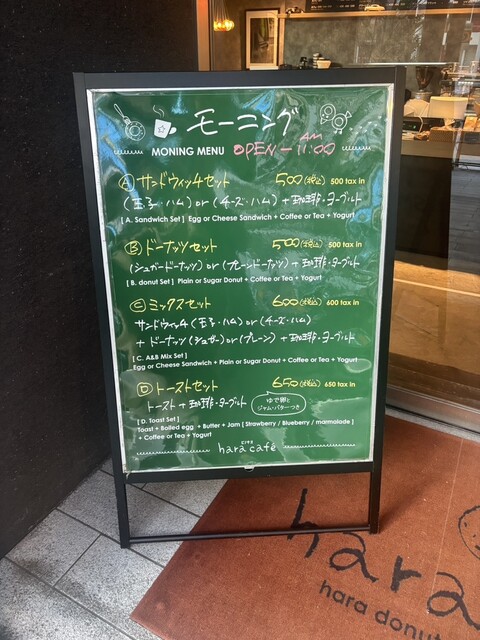 モーニング
MONING MENU OPEN - AM 11:00
Ⓐ サンドウィッチセット 500(税込) 500 tax in
(玉子・ハム) or (チーズ・ハム) + 珈琲・ヨーグルト
[ A. Sandwich Set ] Egg or Cheese Sandwich + Coffee or Tea + Yogurt
Ⓑ ドーナッツセット 500(税込) 500 tax in
(シュガードーナッツ) or (プレーンドーナッツ) + 珈琲・ヨーグルト
[ B. donut Set ] Plain or Sugar Donut + Coffee or Tea + Yogurt
Ⓒ ミックスセット 600(税込) 600 tax in
サンドウィッチ (玉子・ハム) or (チーズ・ハム)
+ ドーナッツ (シュガー) or (プレーン) + 珈琲・ヨーグルト
[ C. A&B Mix Set ]
Egg or Cheese Sandwich + Plain or Sugar Donut + Coffee or Tea + Yogurt
Ⓓ トーストセット 650(税込) 650 tax in
トースト + 珈琲・ヨーグルト
ゆで卵と
ジャム・バターつき
[ D. Toast Set ]
Toast + Boiled egg + Butter + Jam [ Strawberry / Blueberry / marmalade ]
+ Coffee or Tea + Yogurt
hara café
hara
hara donut